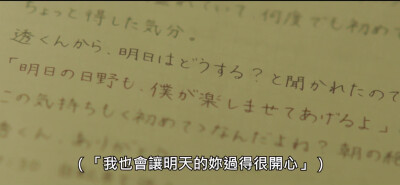 れていて、何度でも初めて
ちょっと得した気分。
透くんから、明日はどうする?と聞かれたので
「明日の日野も、僕が楽しませてあげるよ」
この気持ちも〈初めて〉なんだよね?朝の
透くん、ありが
(「我也會讓明天的妳過得很開心」)